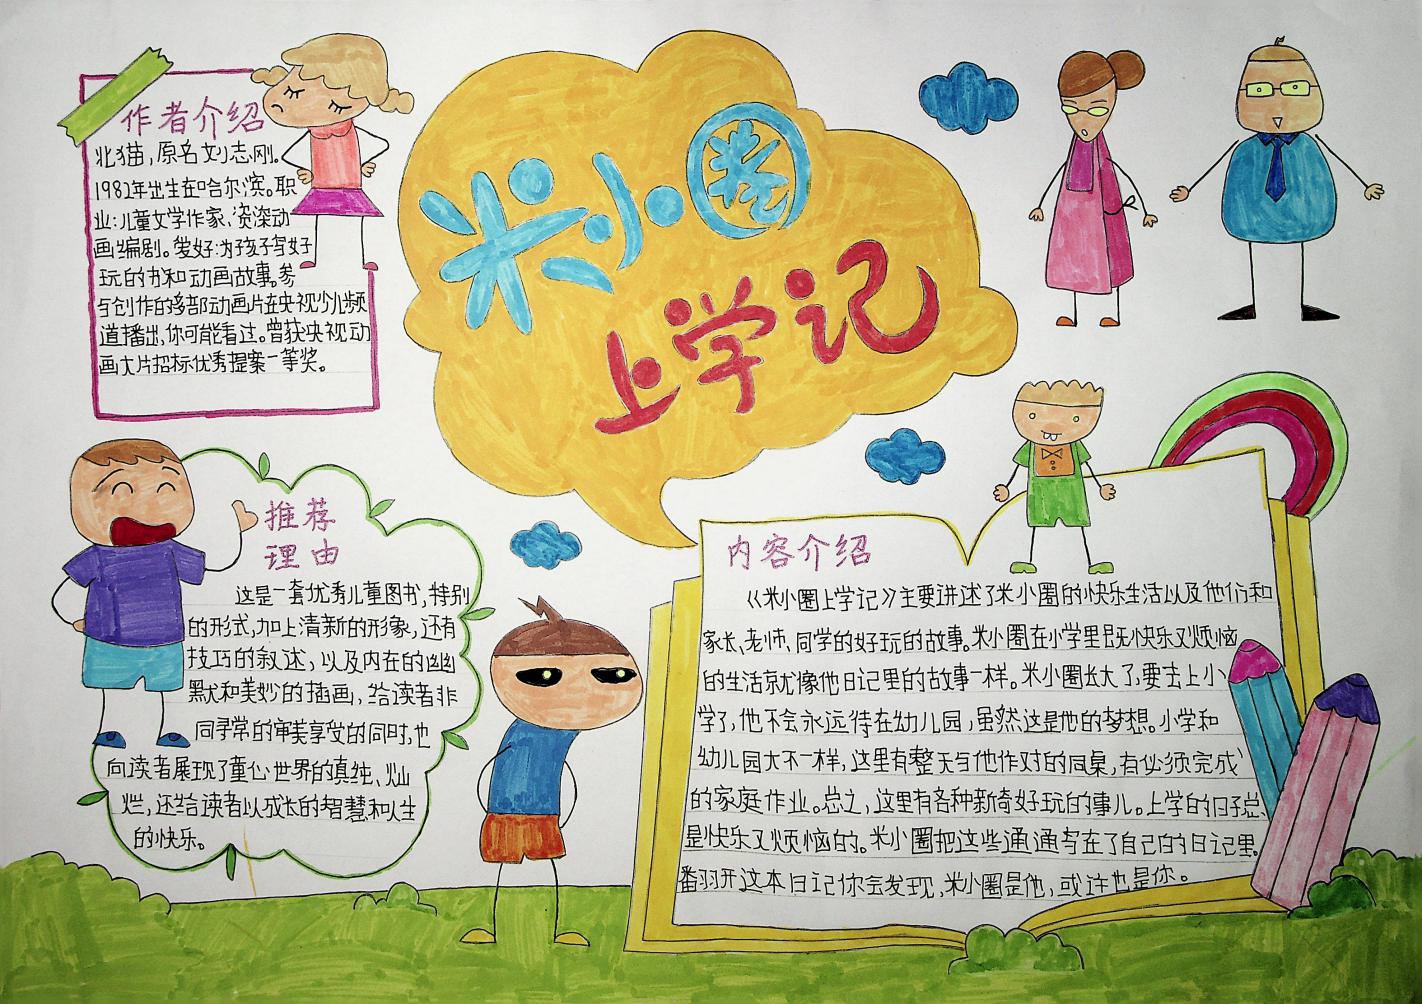 米小圈
上学记
作者介绍
北猫,原名刘志刚。
1981年出生在哈尔滨。职
业:儿童文学作家、资深动
画编剧。爱好:为孩子写好
玩的书和动画故事。参
与创作的多部动画片在央视少儿频
道播出,你可能看过。曾获央视动
画大片招标优秀提案一等奖。
推荐
理由
这是一套优秀儿童图书,特别
的形式,加上清新的形象,还有
技巧的叙述,以及内在的幽
默和美妙的插画,给读者非
同寻常的审美享受的同时,也
向读者展现了童心世界的真纯、灿
烂,还给读者以成长的智慧和人生
的快乐。
内容介绍
《米小圈上学记》主要讲述了米小圈的快乐生活以及他们和
家长、老师、同学的好玩的故事。米小圈在小学里既快乐又烦恼
的生活就像他日记里的故事一样。米小圈长大了,要去上小
学了,他不会永远待在幼儿园,虽然这是他的梦想。小学和
幼儿园大不一样,这里有整天与他作对的同桌,有必须完成
的家庭作业。总之,这里有各种新奇好玩的事儿。上学的日子总
是快乐又烦恼的。米小圈把这些通通写在了自己的日记里。
番羽开这本日记你会发现,米小圈是他,或许也是你。